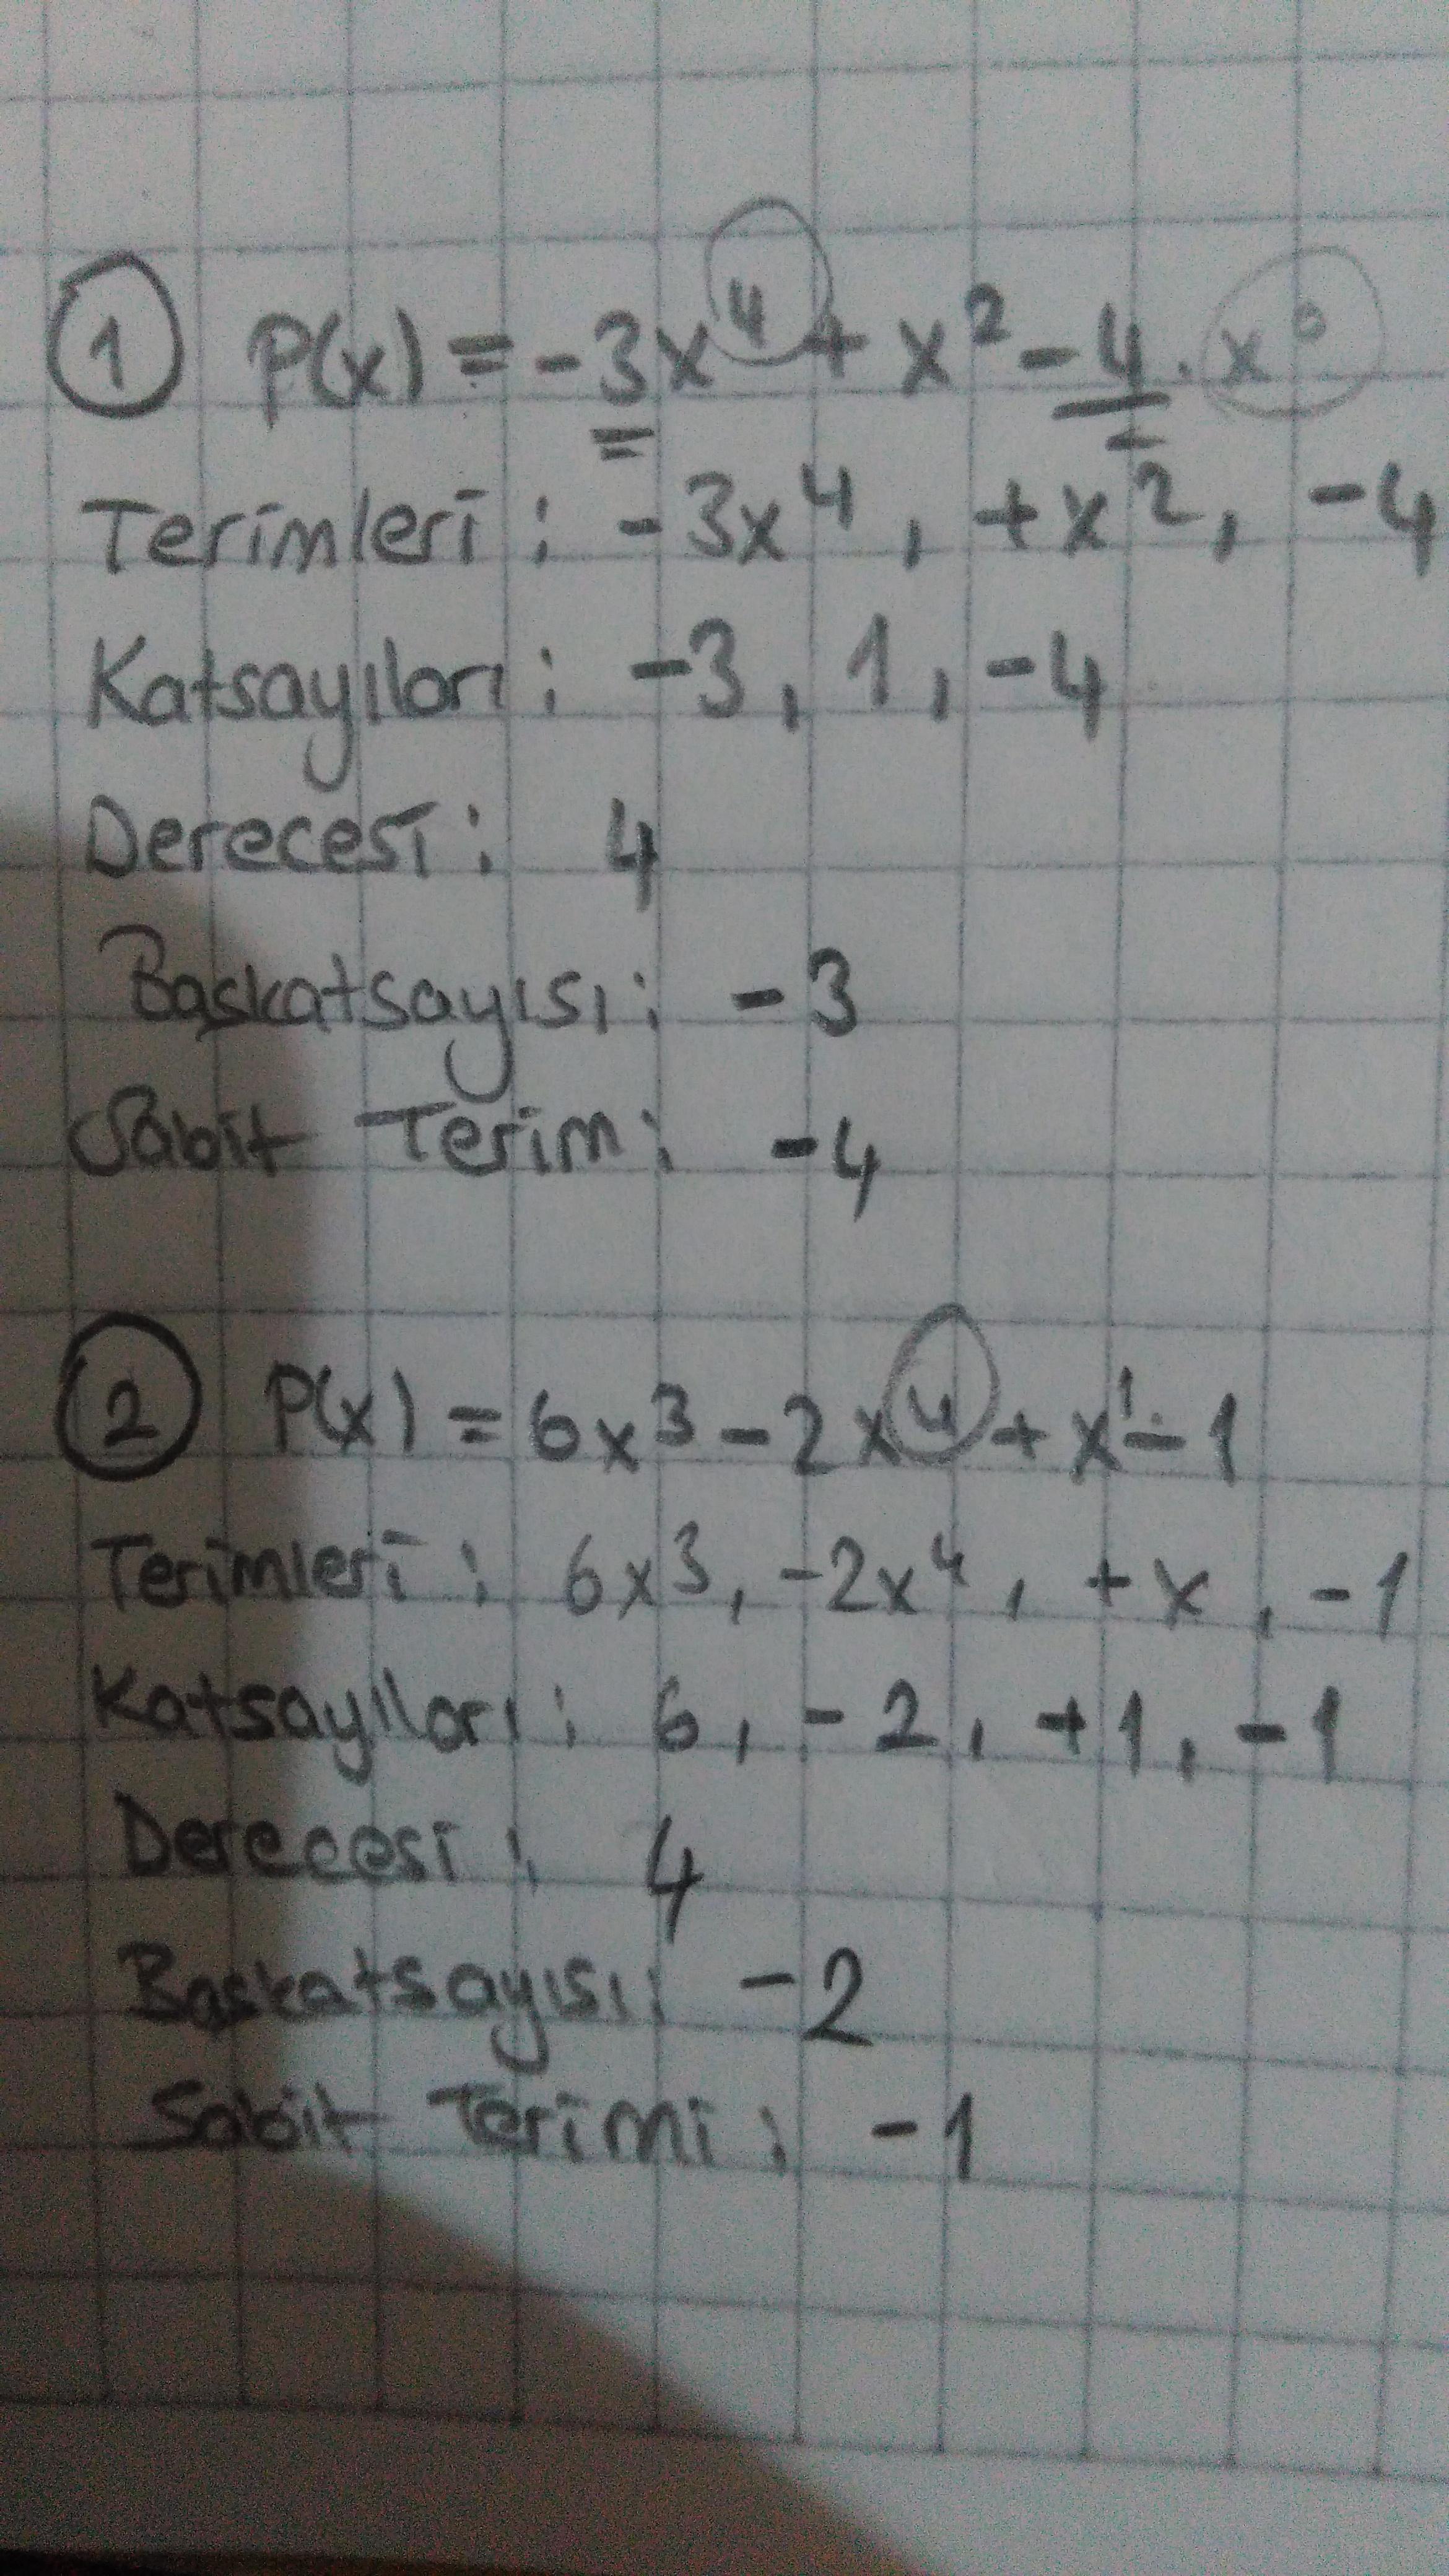 1 P(x) = -3x⁴ + x² - 4 . x⁰
Terimleri : -3x⁴ , +x² , -4
Katsayıları : -3 , 1 , -4
Derecesi : 4
Başkatsayısı : -3
Sabit Terim : -4
2 P(x) = 6x³ - 2x⁴ + x¹ - 1
Terimleri : 6x³ , -2x⁴ , +x , -1
Katsayıları : 6 , -2 , +1 , -1
Derecesi : 4
Başkatsayısı : -2
Sabit Terimi : -1